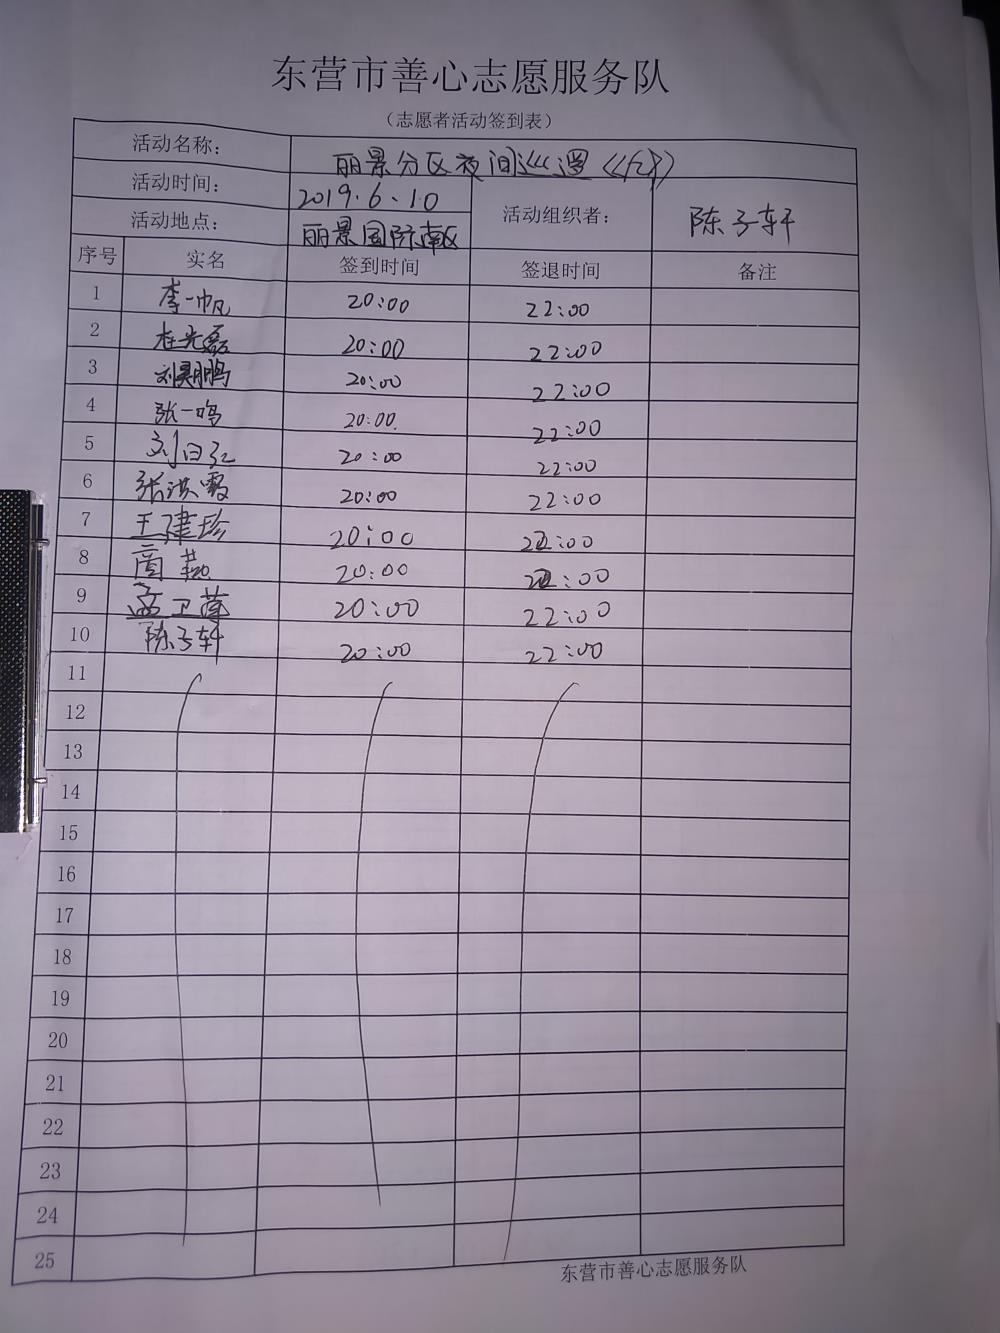 东营市善心志愿服务队
（志愿者活动签到表）
活动名称： 丽景分区夜间巡逻
活动时间： 2019.6.10 活动组织者： 陈子轩
活动地点： 丽景国际南区
序号 实名 签到时间 签退时间 备注
1 李一帆 20:00 22:00
2 杜光磊 20:00 22:00
3 刘昊鹏 20:00 22:00
4 张一鸣 20:00. 22:00
5 20:00 22:00
6 张洪霞 20:00 22:00
7 王建珍 20:00 22:00
8 20:00 22:00
9 孟卫莲 20:00 22:00
10 陈子轩 20:00 22:00
11
12
13
14
15
16
17
18
19
20
21
22
23
24
25
东营市善心志愿服务队